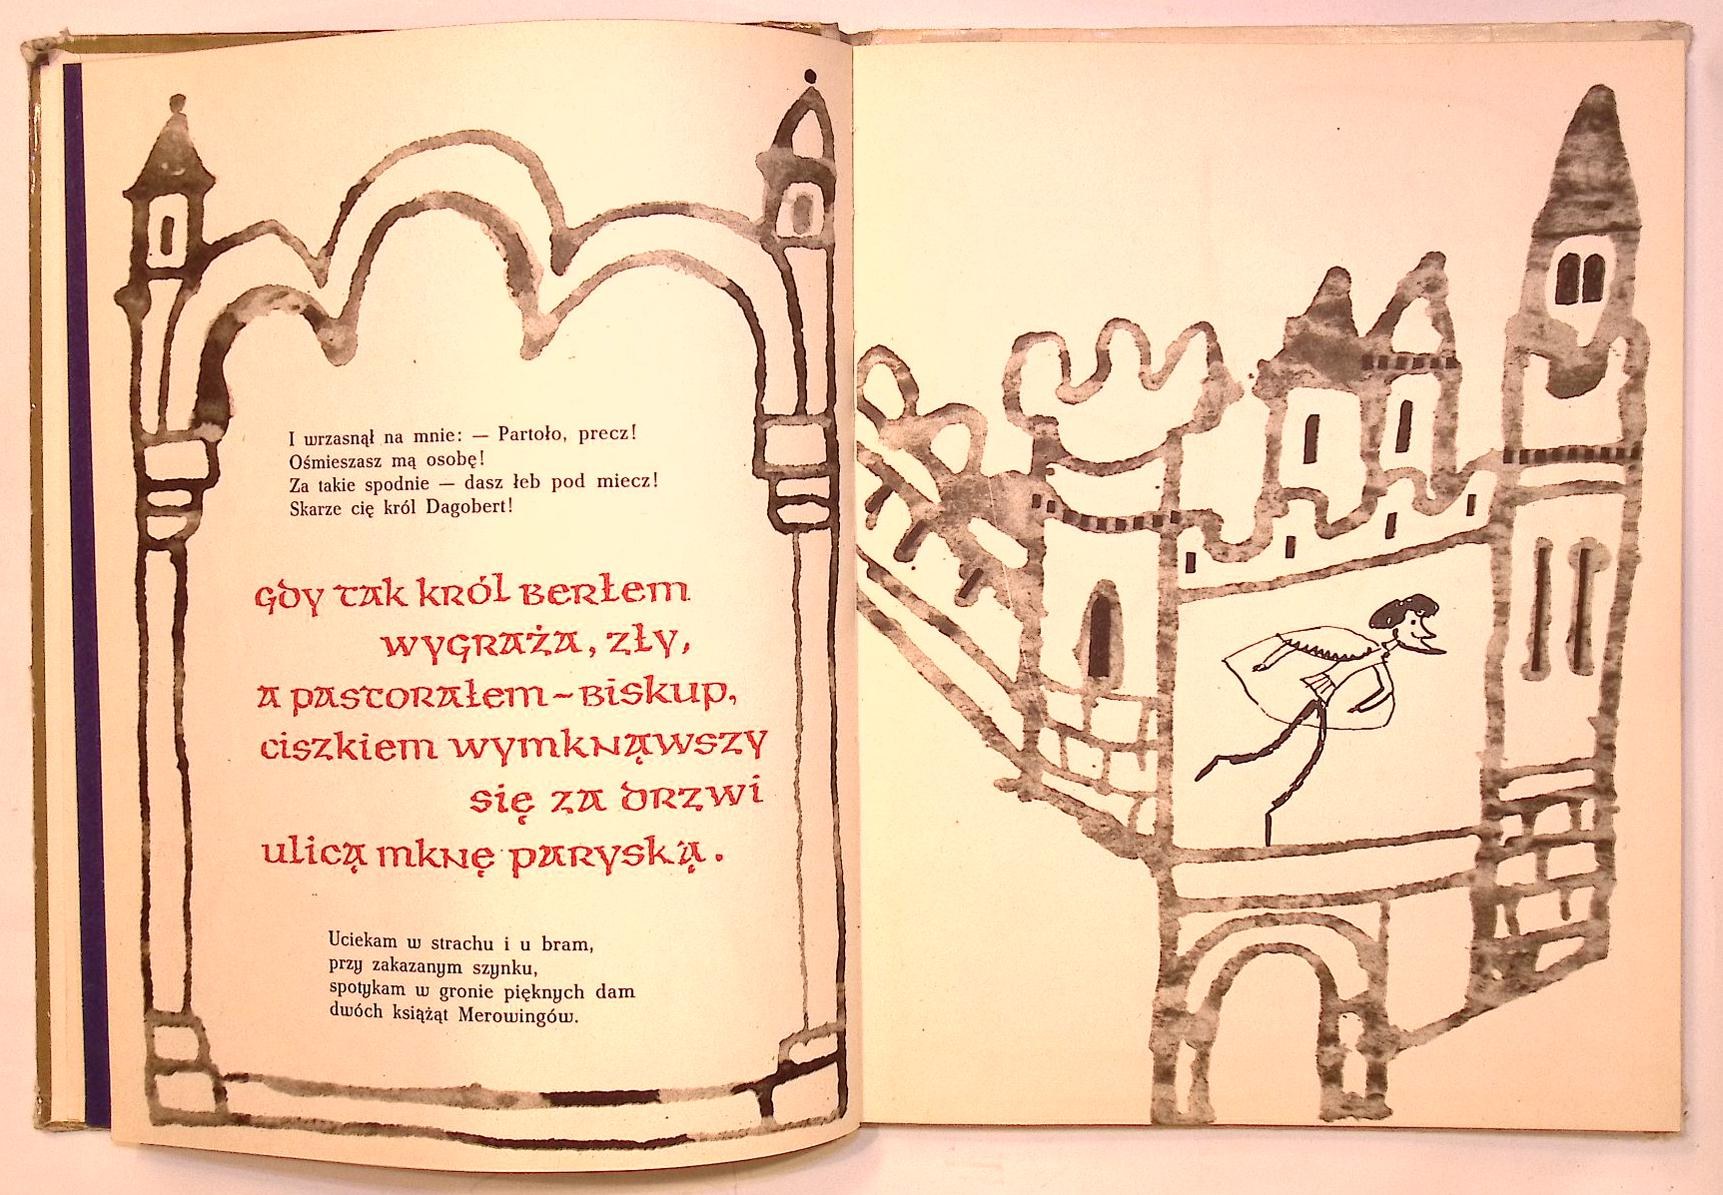 I wrzasnął na mnie: — Partoło, precz!
Ośmieszasz mą osobę!
Za takie spodnie — dasz łeb pod miecz!
Skarze cię król Dagobert!
Gdy tak król berłem
wygraża, zły,
a pastorałem ~ biskup,
ciszkiem wymknąwszy
się za drzwi
ulicą mknę paryską.
Uciekam w strachu i u bram,
przy zakazanym szynku,
spotykam w gronie pięknych dam
dwóch książąt Merowingów.